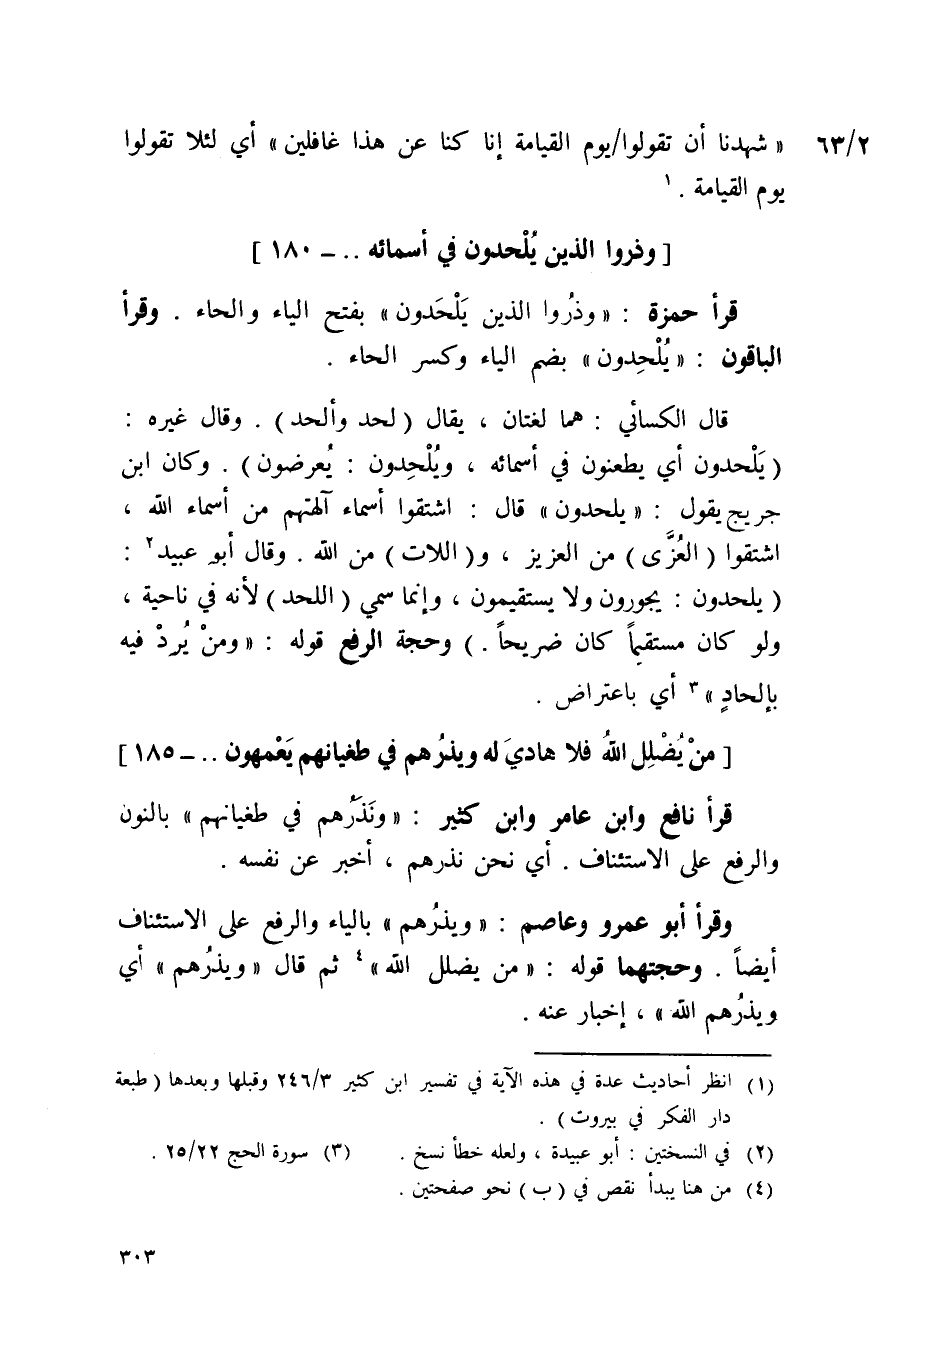 ٦٣/٢ « شهدنا أن تقولوا/يوم القيامة إنا كنا عن هذا غافلين » أي لئلا تقولوا
يوم القيامة . ١
[ وذروا الذين يُلْحدون في أسمائه .. ــ ١٨٠ ]
قرأ حمزة : « وذُروا الذين يَلْحَدون » بفتح الياء والحاء . وقرأ
الباقون : « يُلْحِدون » بضم الياء وكسر الحاء .
قال الكسائي : هما لغتان ، يقال ( لحد وألحد ) . وقال غيره :
( يَلْحدون أي يطعنون في أسمائه ، ويُلْحِدون : يُعرضون ) . وكان ابن
جريج يقول : « يلحدون » قال : اشتقوا أسماء آلهتهم من أسماء الله ،
اشتقوا ( العُزَّى ) من العزيز ، و( اللات ) من الله . وقال أبو عبيد ٢ :
( يلحدون : يجورون ولا يستقيمون ، وإنما سمي ( اللحد ) لأنه في ناحية ،
ولو كان مستقيماً كان ضريحاً . ) وحجة الرفع قوله : « ومنْ يُردْ فيه
بإلحادٍ » ٣ أي باعتراض .
[ منْ يُضْلِل اللهُ فلا هاديَ له ويذرُهم في طغيانهم يَعْمهون .. ــ ١٨٥ ]
قرأ نافع وابن عامر وابن كثير : « ونَذَرُهم في طغيانهم » بالنون
والرفع على الاستئناف . أي نحن نذرهم ، أخبر عن نفسه .
وقرأ أبو عمرو وعاصم : « ويذرُهم » بالياء والرفع على الاستئناف
أيضاً . وحجتهما قوله : « من يضلل الله » ٤ ثم قال « ويذرُهم » أي
ويذرُهم الله » ، إخبار عنه .
(١) انظر أحاديث عدة في هذه الآية في تفسير ابن كثير ٢٤٦/٣ وقبلها وبعدها ( طبعة
دار الفكر في بيروت ) .
(٢) في النسختين : أبو عبيدة ، ولعله خطأ نسخ . (٣) سورة الحج ٢٥/٢٢ .
(٤) من هنا يبدأ نقص في ( ب ) نحو صفحتين .
٣٠٣